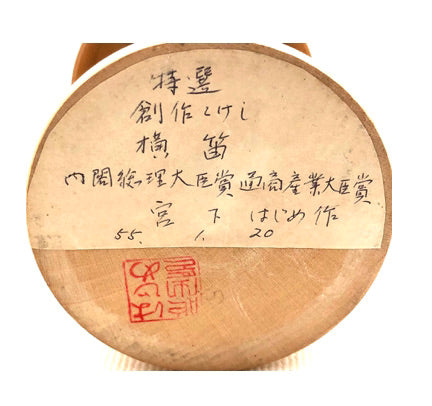 特選
創作こけし
横笛
内閣総理大臣賞 通商産業大臣賞
宮下 はじめ 作
55. 1. 20